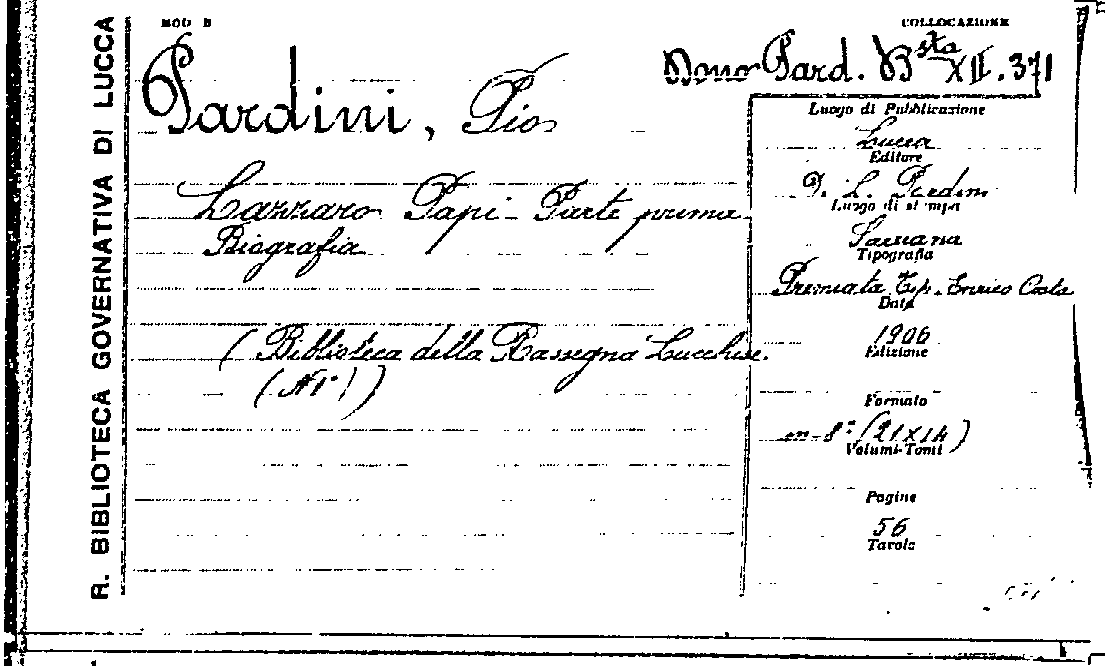 R. BIBLIOTECA GOVERNATIVA DI LUCCA
MOD B
COLLOCAZIONE
Dono Pard. Bsta XII. 371
Pardini, Pio
Lazzaro Papi - Parte prima
Biografia
(Biblioteca della Rassegna Lucchese.
(N.º 1))
Luogo di Pubblicazione
Lucca
Editore
D. L. Pardini
Luogo di stampa
Sarzana
Tipografia
Premiata Tip. Enrico Costa
Data
1906
Edizione
Formato
in-8º (21x14)
Volumi-Tomi
Pagine
56
Tavole